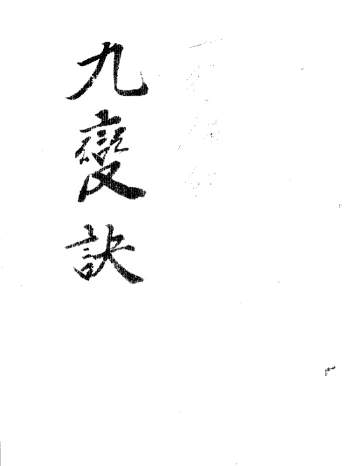 九變訣